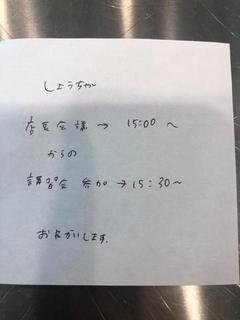 しょうちゃん
店長会議 → 15:00 〜
からの
講習会 参加 → 15:30〜
おねがいします。